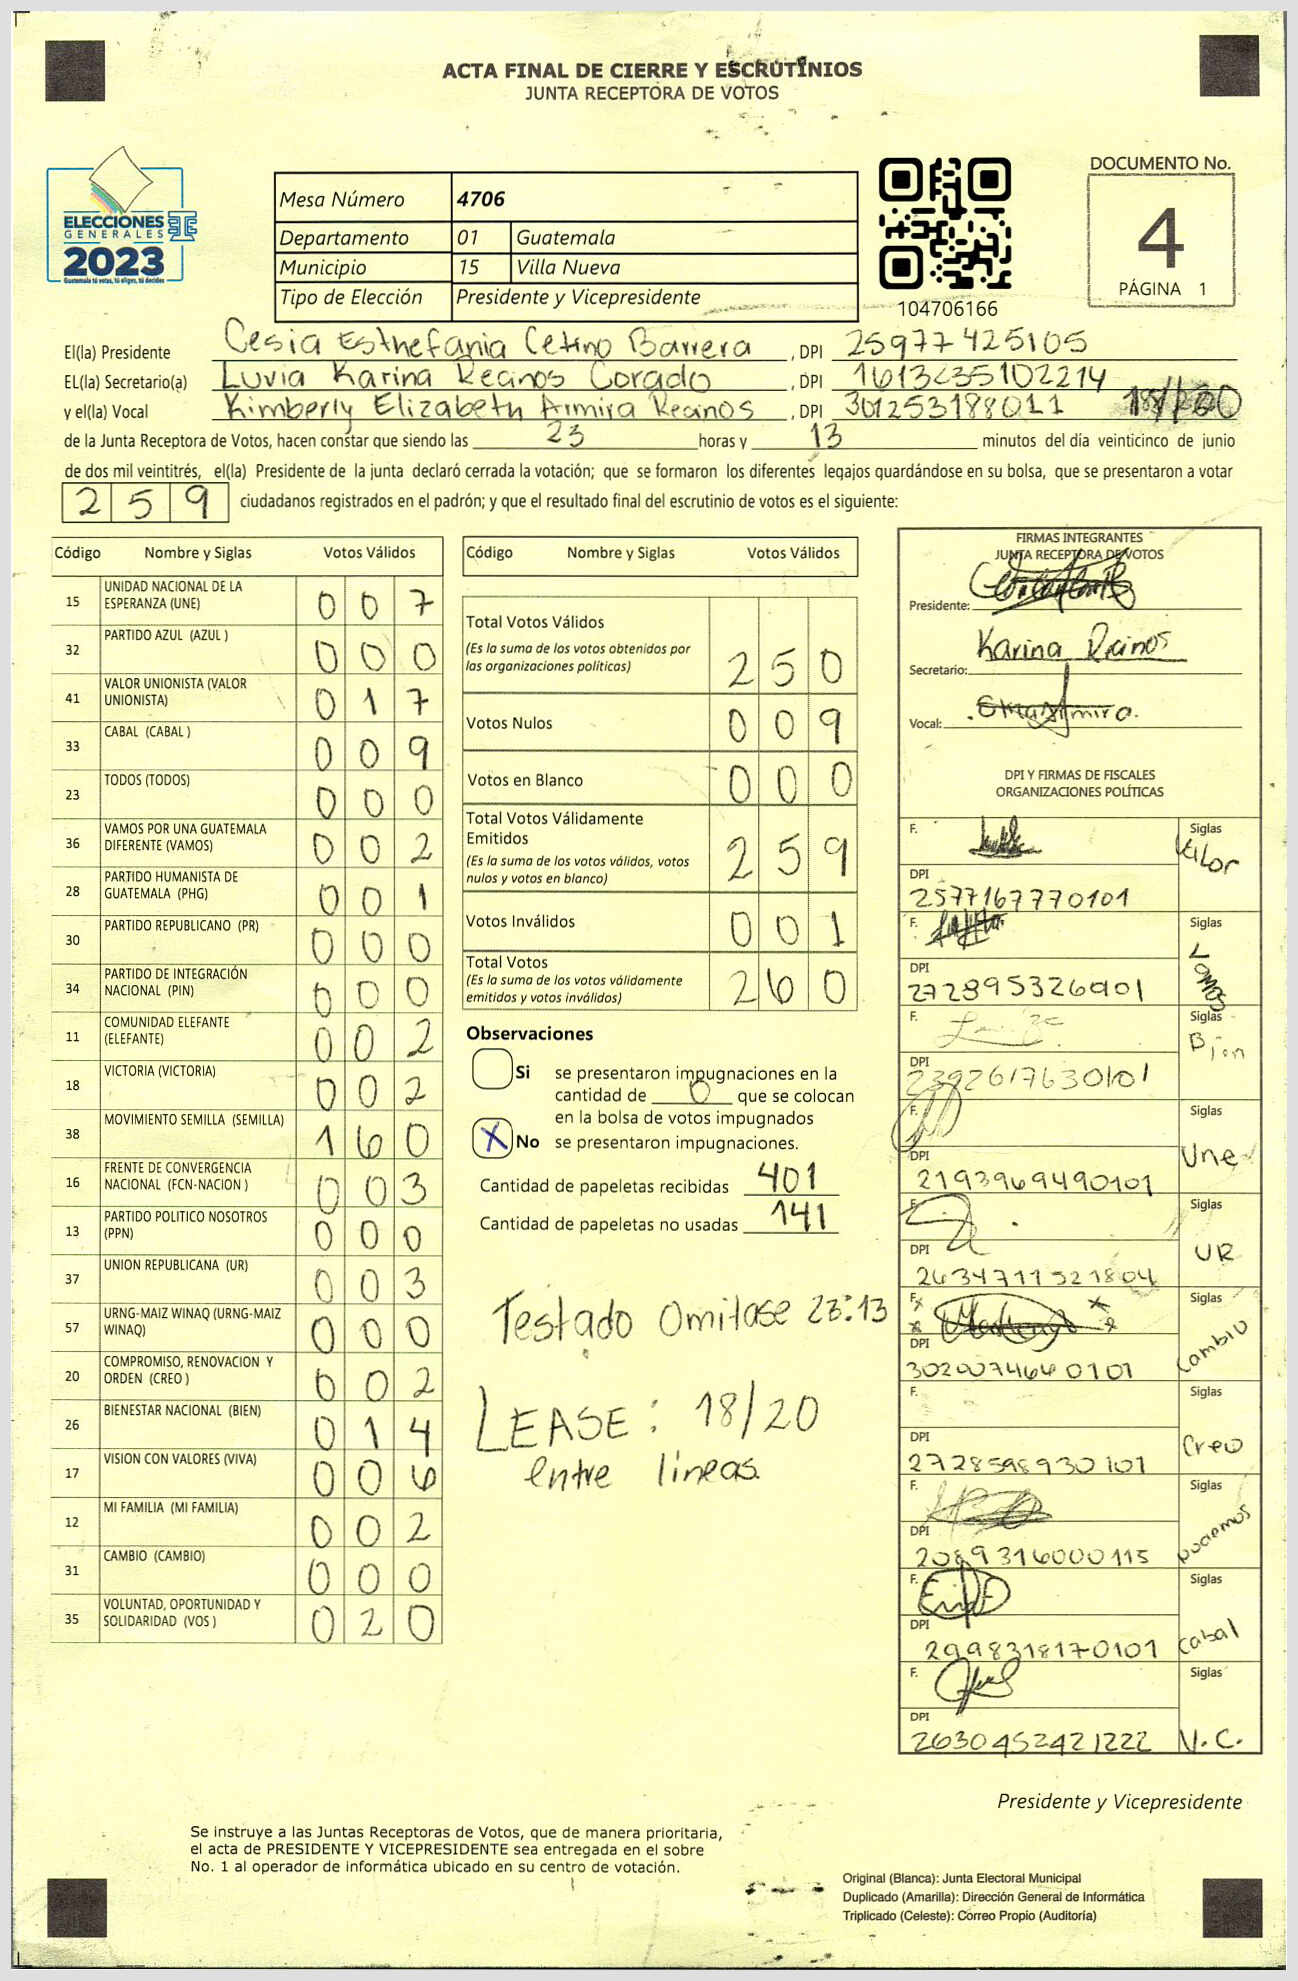 ACTA FINAL DE CIERRE Y ESCRUTINIOS
JUNTA RECEPTORA DE VOTOS
ELECCIONES
GENERALES
2023
Guatemala tú votas, tú eliges, tú decides
Mesa Número 4706
Departamento 01 Guatemala
Municipio 15 Villa Nueva
Tipo de Elección Presidente y Vicepresidente
104706166
DOCUMENTO No.
4
PÁGINA 1
El(la) Presidente Cesia Esthefania Cetino Barrera , DPI 25977425105
EL(la) Secretario(a) Luvia Karina Recinos Corado , DPI
y el(la) Vocal Kimberly Elizabeth Armira Recinos , DPI 301253188011
de la Junta Receptora de Votos, hacen constar que siendo las 23 horas y 13 minutos del día veinticinco de junio
de dos mil veintitrés, el(la) Presidente de la junta declaró cerrada la votación; que se formaron los diferentes legajos guardándose en su bolsa, que se presentaron a votar
259 ciudadanos registrados en el padrón; y que el resultado final del escrutinio de votos es el siguiente:
Código Nombre y Siglas Votos Válidos
15 UNIDAD NACIONAL DE LA ESPERANZA (UNE) 007
32 PARTIDO AZUL (AZUL ) 000
41 VALOR UNIONISTA (VALOR UNIONISTA) 017
33 CABAL (CABAL ) 009
23 TODOS (TODOS) 000
36 VAMOS POR UNA GUATEMALA DIFERENTE (VAMOS) 002
28 PARTIDO HUMANISTA DE GUATEMALA (PHG) 001
30 PARTIDO REPUBLICANO (PR) 000
34 PARTIDO DE INTEGRACIÓN NACIONAL (PIN) 000
11 COMUNIDAD ELEFANTE (ELEFANTE) 002
18 VICTORIA (VICTORIA) 002
38 MOVIMIENTO SEMILLA (SEMILLA) 160
16 FRENTE DE CONVERGENCIA NACIONAL (FCN-NACION ) 003
13 PARTIDO POLITICO NOSOTROS (PPN) 000
37 UNION REPUBLICANA (UR) 003
57 URNG-MAIZ WINAQ (URNG-MAIZ WINAQ) 000
20 COMPROMISO, RENOVACION Y ORDEN (CREO ) 002
26 BIENESTAR NACIONAL (BIEN) 014
17 VISION CON VALORES (VIVA) 006
12 MI FAMILIA (MI FAMILIA) 002
31 CAMBIO (CAMBIO) 000
35 VOLUNTAD, OPORTUNIDAD Y SOLIDARIDAD (VOS ) 020
Código Nombre y Siglas Votos Válidos
Total Votos Válidos 250
(Es la suma de los votos obtenidos por
las organizaciones políticas)
Votos Nulos 009
Votos en Blanco 000
Total Votos Válidamente
Emitidos 259
(Es la suma de los votos válidos, votos
nulos y votos en blanco)
Votos Inválidos 001
Total Votos 260
(Es la suma de los votos válidamente
emitidos y votos inválidos)
Observaciones
Si se presentaron impugnaciones en la
cantidad de 0 que se colocan
en la bolsa de votos impugnados
X No se presentaron impugnaciones.
Cantidad de papeletas recibidas 401
Cantidad de papeletas no usadas 141
Testado Omitase 23:13
LEASE: 18/20
entre lineas.
FIRMAS INTEGRANTES
JUNTA RECEPTORA DE VOTOS
Presidente:
Secretario: Karina Recinos
Vocal:
DPI Y FIRMAS DE FISCALES
ORGANIZACIONES POLÍTICAS
F. Siglas Valor
DPI 2577167770101
F. Siglas Vamos
DPI 272895326901
F. Siglas Bien
DPI 2392617630101
F. Siglas Une
DPI 2193969490101
F. Siglas UR
DPI 2634711521804
F. Siglas Cambio
DPI
F. Siglas Creo
DPI 2728598930101
F. Siglas podemos
DPI 2089316000115
F. Siglas Cabal
DPI 2998318170101
F. Siglas V.C.
DPI 2630452421222
Presidente y Vicepresidente
Se instruye a las Juntas Receptoras de Votos, que de manera prioritaria,
el acta de PRESIDENTE Y VICEPRESIDENTE sea entregada en el sobre
No. 1 al operador de informática ubicado en su centro de votación.
Original (Blanca): Junta Electoral Municipal
Duplicado (Amarilla): Dirección General de Informática
Triplicado (Celeste): Correo Propio (Auditoría)